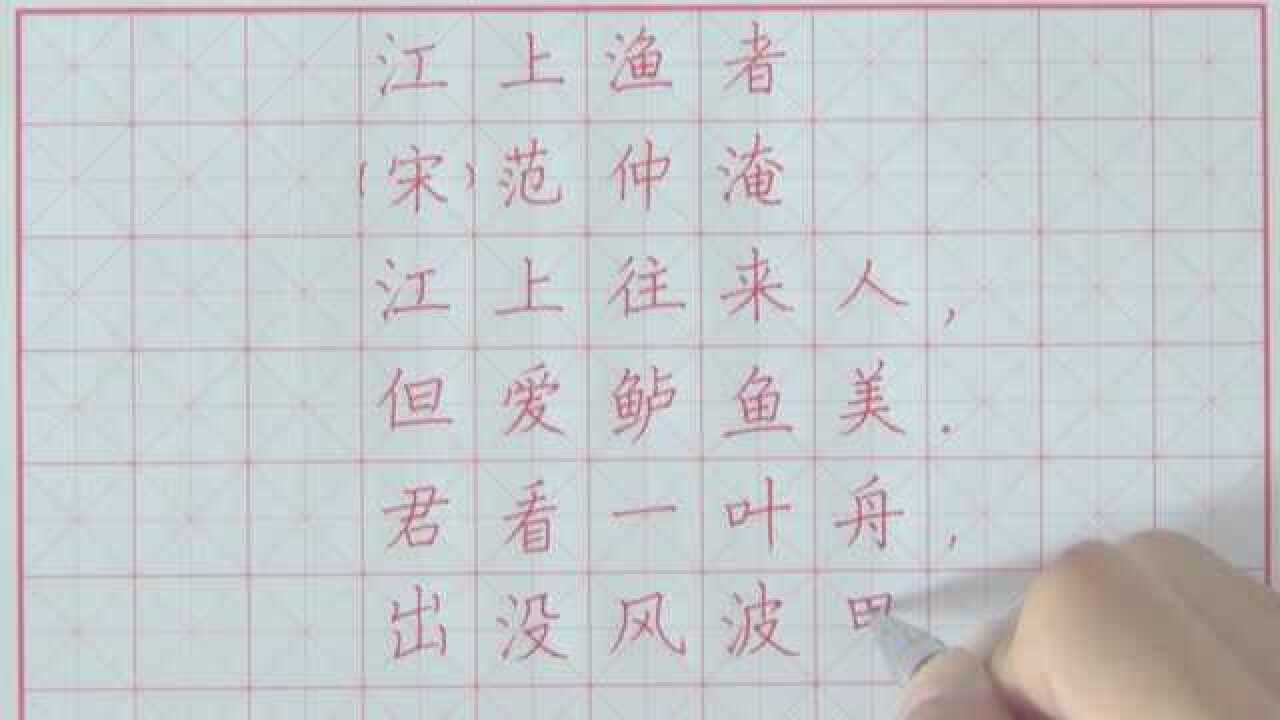 江上渔者
(宋)范仲淹
江上往来人,
但爱鲈鱼美.
君看一叶舟,
出没风波